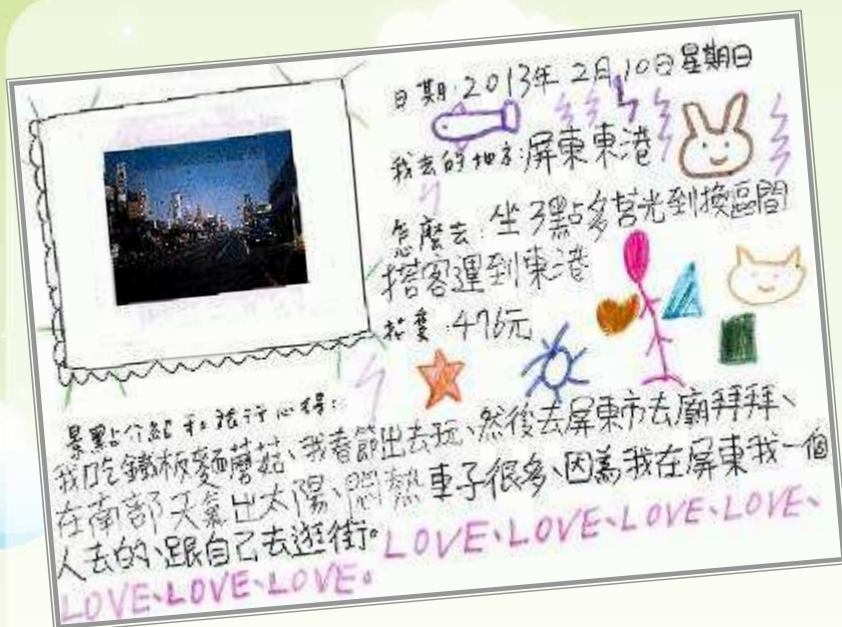 日期:2013年2月10日星期日
我去的地方:屏東東港
怎麼去:坐3點多莒光到換區間
搭客運到東港
花費:476元
景點介紹和旅行心得:
我吃鐵板麵蘑菇、我春節出去玩、然後去屏東市去廟拜拜、
在南部天氣出太陽、悶熱車子很多、因為我在屏東我一個
人去的、跟自己去逛街。LOVE、LOVE、LOVE、LOVE、
LOVE、LOVE、LOVE。